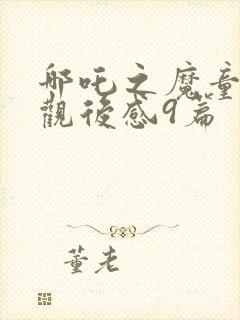 哪吒之魔童
觀後感9篇
董老